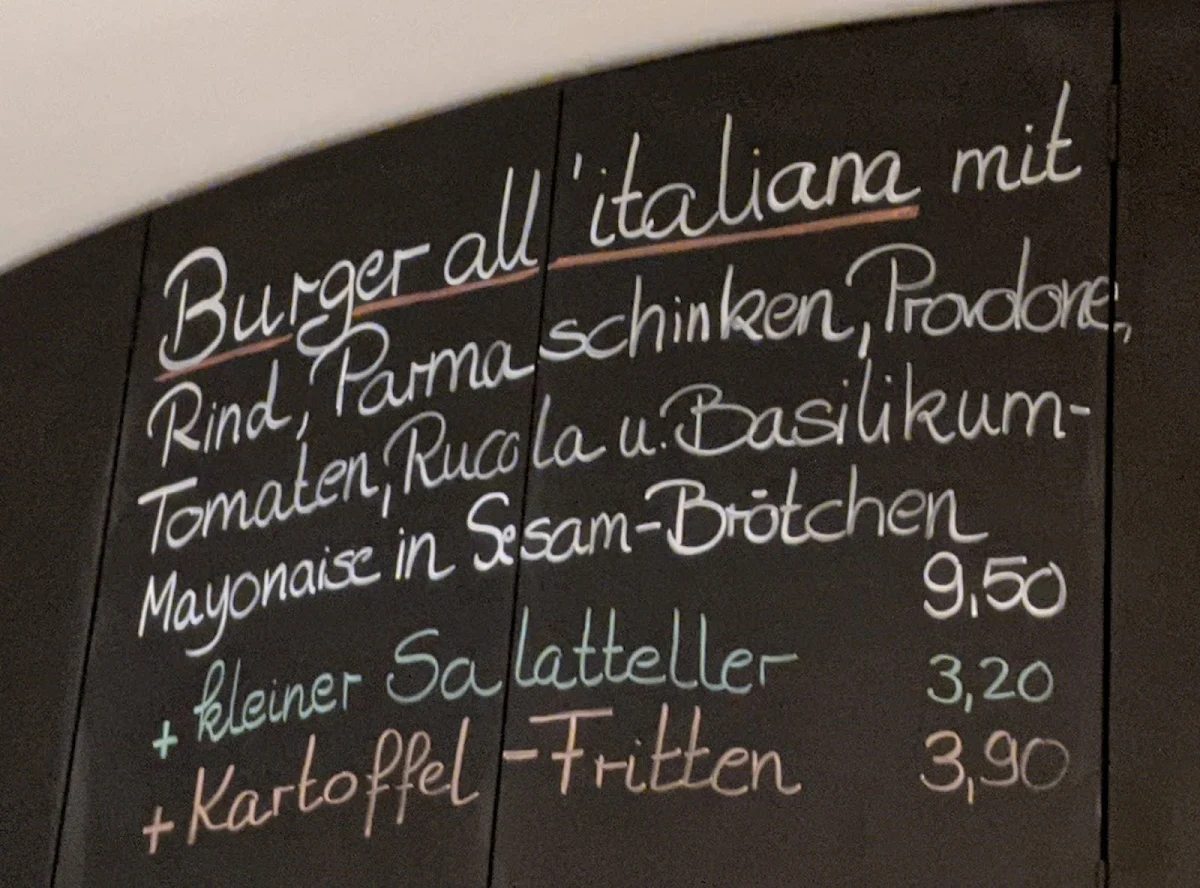 Burger all'italiana mit
Rind, Parmaschinken, Provolone,
Tomaten, Rucola u. Basilikum-
Mayonaise in Sesam-Brötchen
9,50
+ kleiner Salatteller 3,20
+ Kartoffel-Fritten 3,90